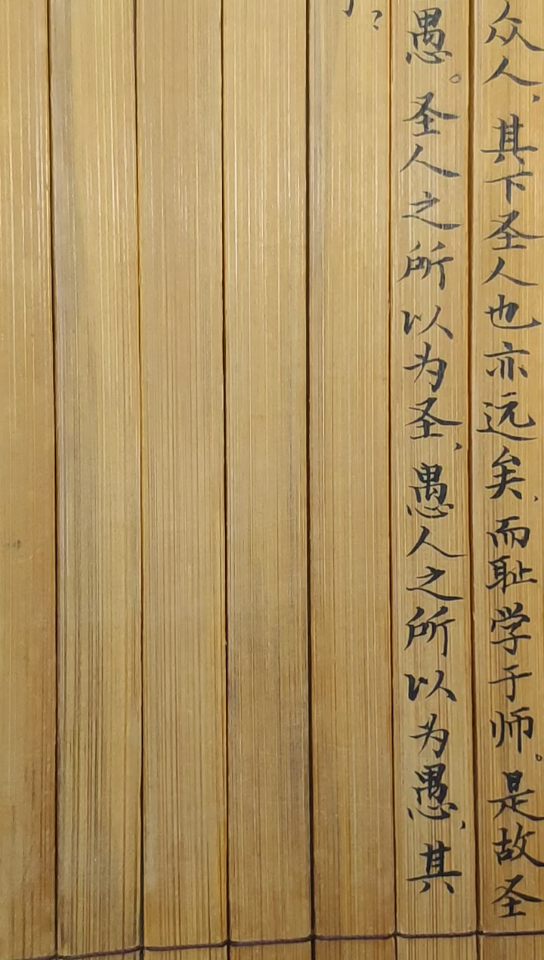 众人，其下圣人也亦远矣，而耻学于师。是故圣
愚。圣人之所以为圣，愚人之所以为愚，其
？